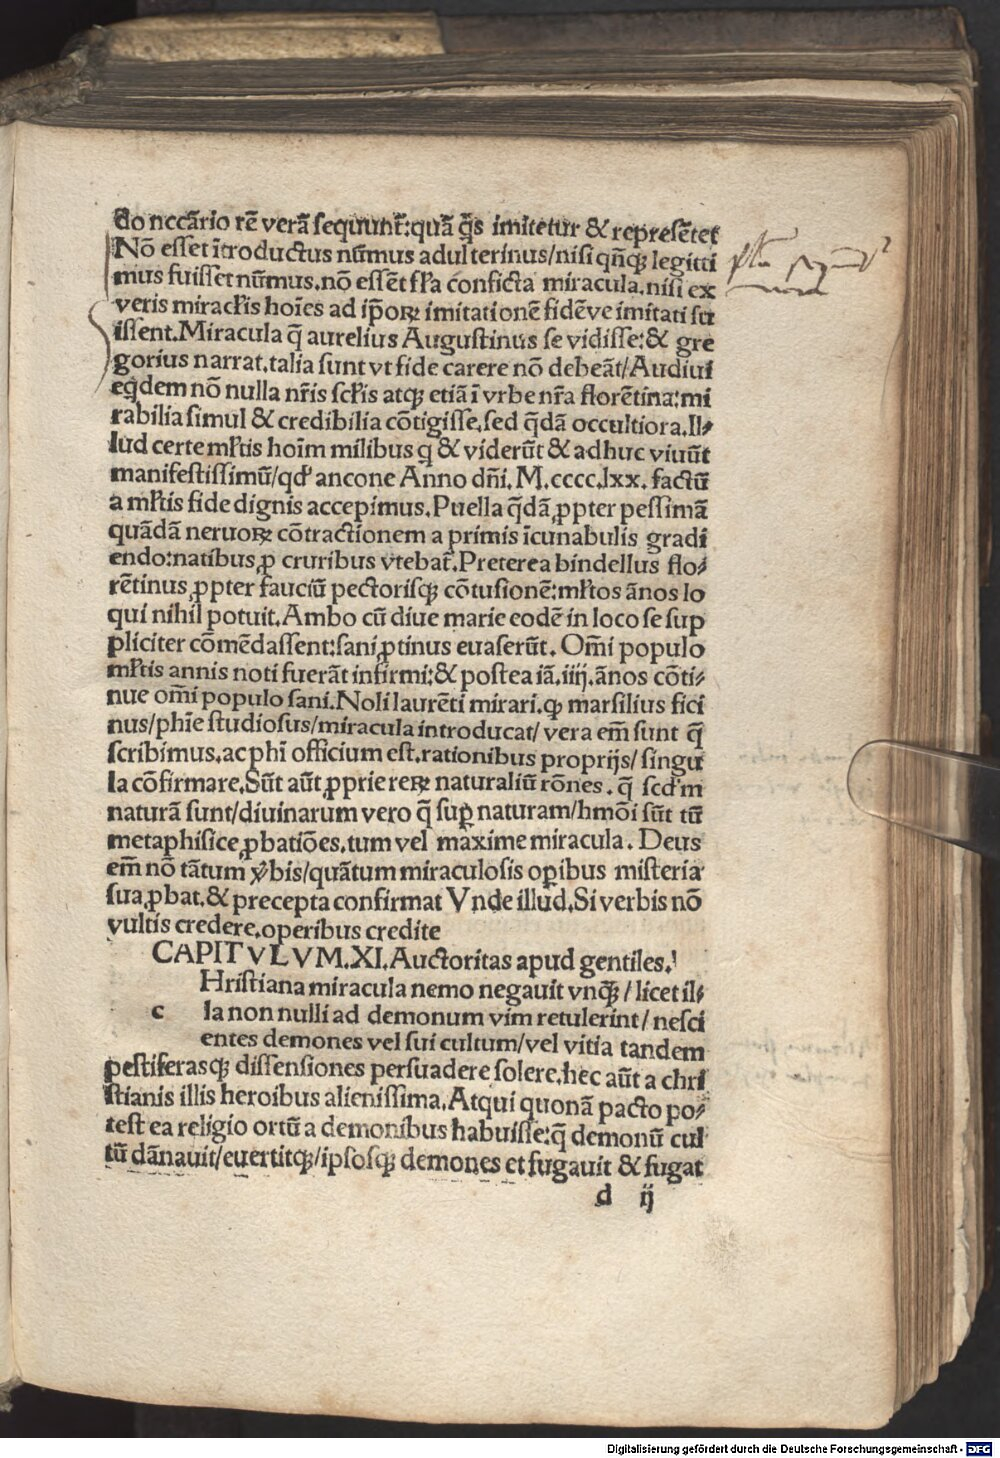 do nccãrio rẽ verã sequunt̃:quã q̃s imitetur & represẽtet
Nõ esset ĩtroductus nũmus adulterinus/nisi qñqȝ legitti
mus fuisset nũmus.nõ essẽt fľa conficta miracula.nisi ex
veris miracľis hoĩes ad ip̃oꝝ imitationẽ fidẽve imitati fu
issent.Miracula q̃ aurelius Augustinus se vidisse:& gre
gorius narrat.talia sunt vt fide carere nõ debeãt/Audiui
eqdem nõ nulla nr̃is scľis atqȝ etiã ĩ vrbe nr̃a florẽtina:mi
rabilia simul & credibilia cõtigisse.sed q̃dã occultiora.Il⸗
lud certe mľtis hoĩm milibus q & viderũt & adhuc viuũt
manifestissimũ/qď ancone Anno dñi.M.cccc.lxx.factũ
a mľtis fide dignis accepimus.Puella q̃dã ꝓpter pessimã
quãdã neruoꝝ cõtractionem a primis ĩcunabulis gradi
endo:natibus ꝓ cruribus vtebat̃.Preterea bindellus flo⸗
rẽtinus ꝓpter fauciũ pectorisqȝ cõtusionẽ:mľtos ãnos lo
qui nihil potuit.Ambo cũ diue marie eodẽ in loco se sup
pliciter cõmẽdassent:sani ꝓtinus euaserũt.Om̃i populo
mľtis annis noti fuerãt infirmi:& postea iã.iiij.ãnos cõti⸗
nue om̃i populo sani.Noli laurẽti mirari.ꝙ marsilius fici
nus/phiẽ studiosus/miracula introducat/vera em̃ sunt q̃
scribimus.ac phĩ officium est.rationibus proprijs/singu
la cõfirmare.Sũt aũt ꝓprie reꝝ naturaliũ rõnes.q̃ scďm
naturã sunt/diuinarum vero q̃ sup̃ naturam/hmõi sũt tũ
metaphisice ꝓbatiões.tum vel maxime miracula.Deus
em̃ nõ tãtum ṽbis/quãtum miraculosis op̃ibus misteria
sua ꝓbat.& precepta confirmat Vnde illud.Si verbis nõ
vultis credere.operibus credite
CAPITVLVM.XI.Auctoritas apud gentiles.
Hristiana miracula nemo negauit vnqȝ/licet il⸗
c la non nulli ad demonum vim retulerint/nesci
entes demones vel sui cultum/vel vitia tandem
pestiferasqȝ dissensiones persuadere solere.hec aũt a chri
stianis illis heroibus alienissima.Atqui quonã pacto po⸗
test ea religio ortũ a demonibus habuisse:q̃ demonũ cul
tũ dãnauit/euertitqȝ/ipsosqȝ demones et fugauit & fugat
d ij
Digitalisierung gefördert durch die Deutsche Forschungsgemeinschaft - DFG